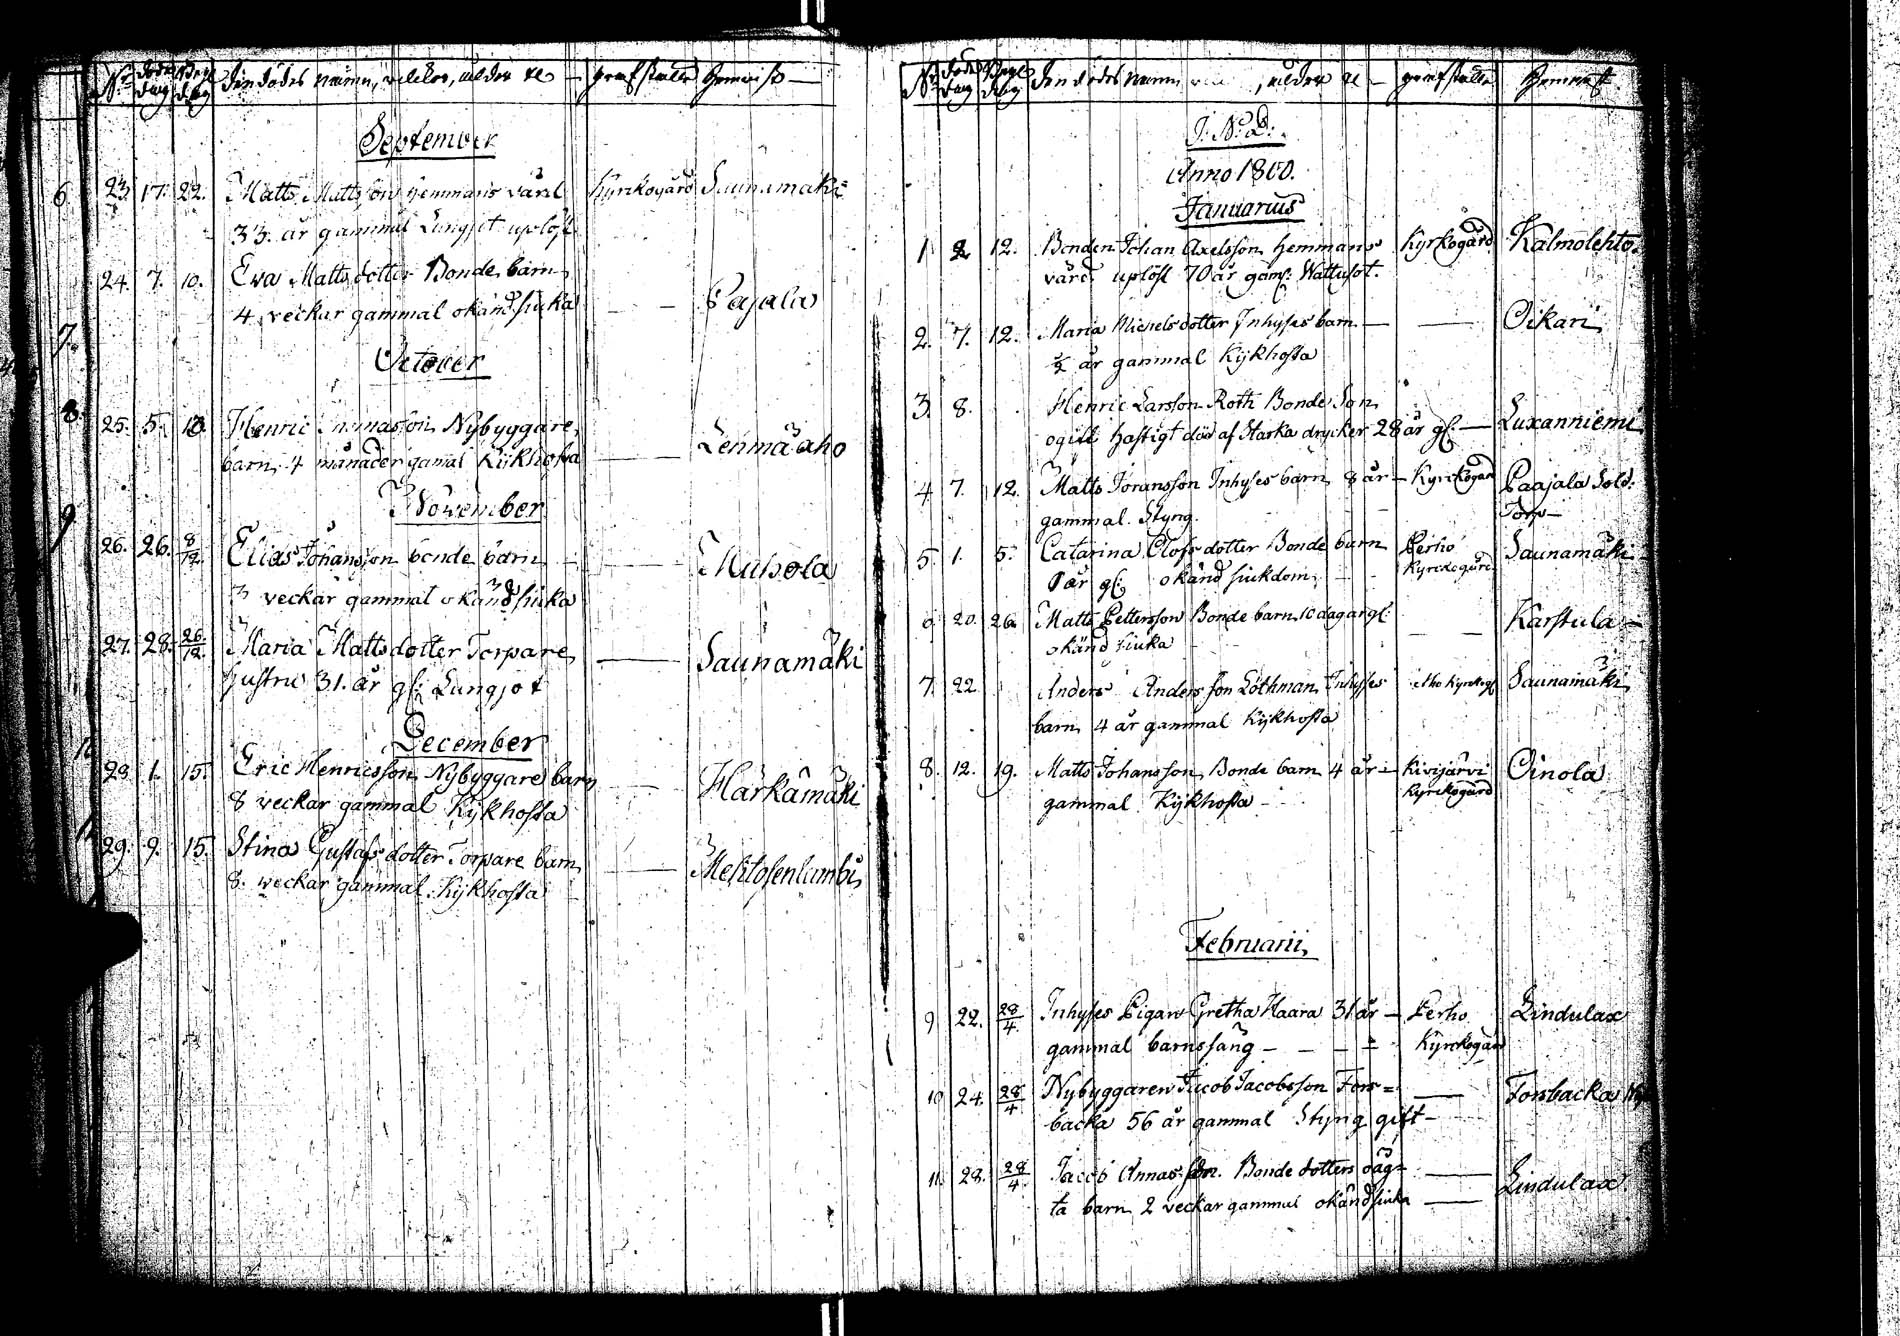 N:o döde dag Begr dag den dödes namn, vilkor, ålder &c grafställe Hemvist
September
6
23. 17. 22. Matts Mattsson hemmans värd Kyrckogård Saunamäki
33. år gammal Lungsot uplöst
24. 7. 10. Eva Mattsdotter Bonde barn
4 veckar gammal okänd siuka — — Pajala
7.
October
8.
25. 5. 10. Henric Nybyggare
barn 4 månader gamal Kijkhosta — — Lenmä aho
November
9
26. 26. 8/12. Elias Johansson bonde barn — — — Muhola
3 veckar gammal okänd siuka
27. 28. 26/12. Maria Mattsdotter Torpare — Saunamäki
hustru 31. år gl: Lungsot
December
28. 1. 15. Eric Henricsson Nybyggare barn — Härkämäki
8 veckar gammal Kijkhosta
29. 9. 15. Stina Gustafsdotter Torpare barn
8. veckar gammal Kijkhosta — — Mehtosenlambi
N:o döde dag Begr dag den dödes namn, ålder &c — grafställe Hemvist
J: N: d:
Anno 1800.
Januarius
1 2 12. Bonden Johan Axelsson hemmans Kyrkogård Kalmolehto.
värd uplöst 70 år gam: Wattusot.
2. 7. 12. Maria Michelsdotter Inhyses barn — — Oikari
1/2 år gammal Kijkhosta
3. 8. Henric Larsson Roth Bonde Son
ogift hastigt död af Starka drycker 28 år gl — Luxanniemi
4 7. 12. Matts Göransson Inhyses barn 8 år — Kyrckogård Paajala Sold:
gammal. Styng. Torp —
5 1. 5. Catarina Olofsdotter Bonde barn Perho Saunamäki —
år gl: okänd siukdom Kyrckogård
6 20. 26. Matts Pettersson Bonde barn 10 dagar gl: — — Karstula —
okänd siuka
7. 22 Anders Andersson Löthman Inhyses Saunamäki
barn 4 år gammal Kijkhosta
8. 12. 19. Matts Johansson Bonde barn 4 år — Kivijärvi Oinola
gammal Kijkhosta — Kyrckogård
Februarii
9 22. 28/4 Inhyses Pigan Gretha Haara 31 år — Perho Lindulax
gammal barnssäng — — — Kyrckogård
10 24. 28/4 Nybyggaren Jacob Jacobsson Fors= — Forsbacka
backa 56 år gammal Styng gift —
11. 28. 28/4 Jacob Annas: son. Bonde dotters oäg= —
ta barn 2 veckar gammal okänd siuka — Lindulax